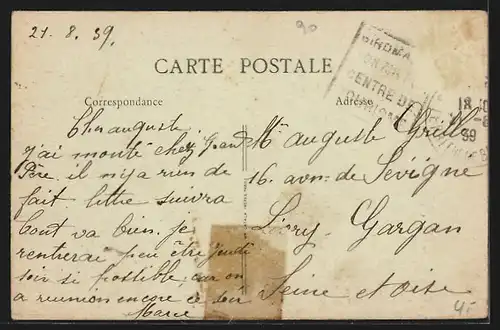 21.8.39.
90
CARTE POSTALE
Correspondance
Adresse
CENTRE DE
18
39
Cher auguste
j'ai monté chez grand
Père il ni a rien de
fait lettre suivra
tout va bien. je
rentrerai peu être jeudi
soir si possible, car on
a reunion encore ce soir
Mr auguste Grille
16. avn. de Sévigné
Livry-Gargan
Seine et oise